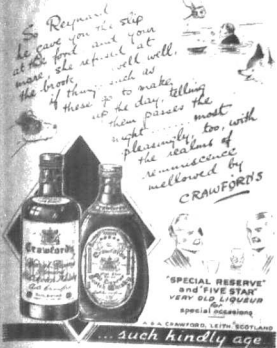 So Reynard
he gave you the slip
at the ford and your
mare, she refused at
the brook, .... well, well,
if things such as
these go to make
up the day, telling
them passes the
night .... most
pleasingly, too, with
the realms of
reminiscence
mellowed by
CRAWFORD'S
Crawford's
Crawford's
"SPECIAL RESERVE"
and "FIVE STAR"
VERY OLD LIQUEUR
for
special occasions
A & A CRAWFORD, LEITH, SCOTLAND
...such kindly age